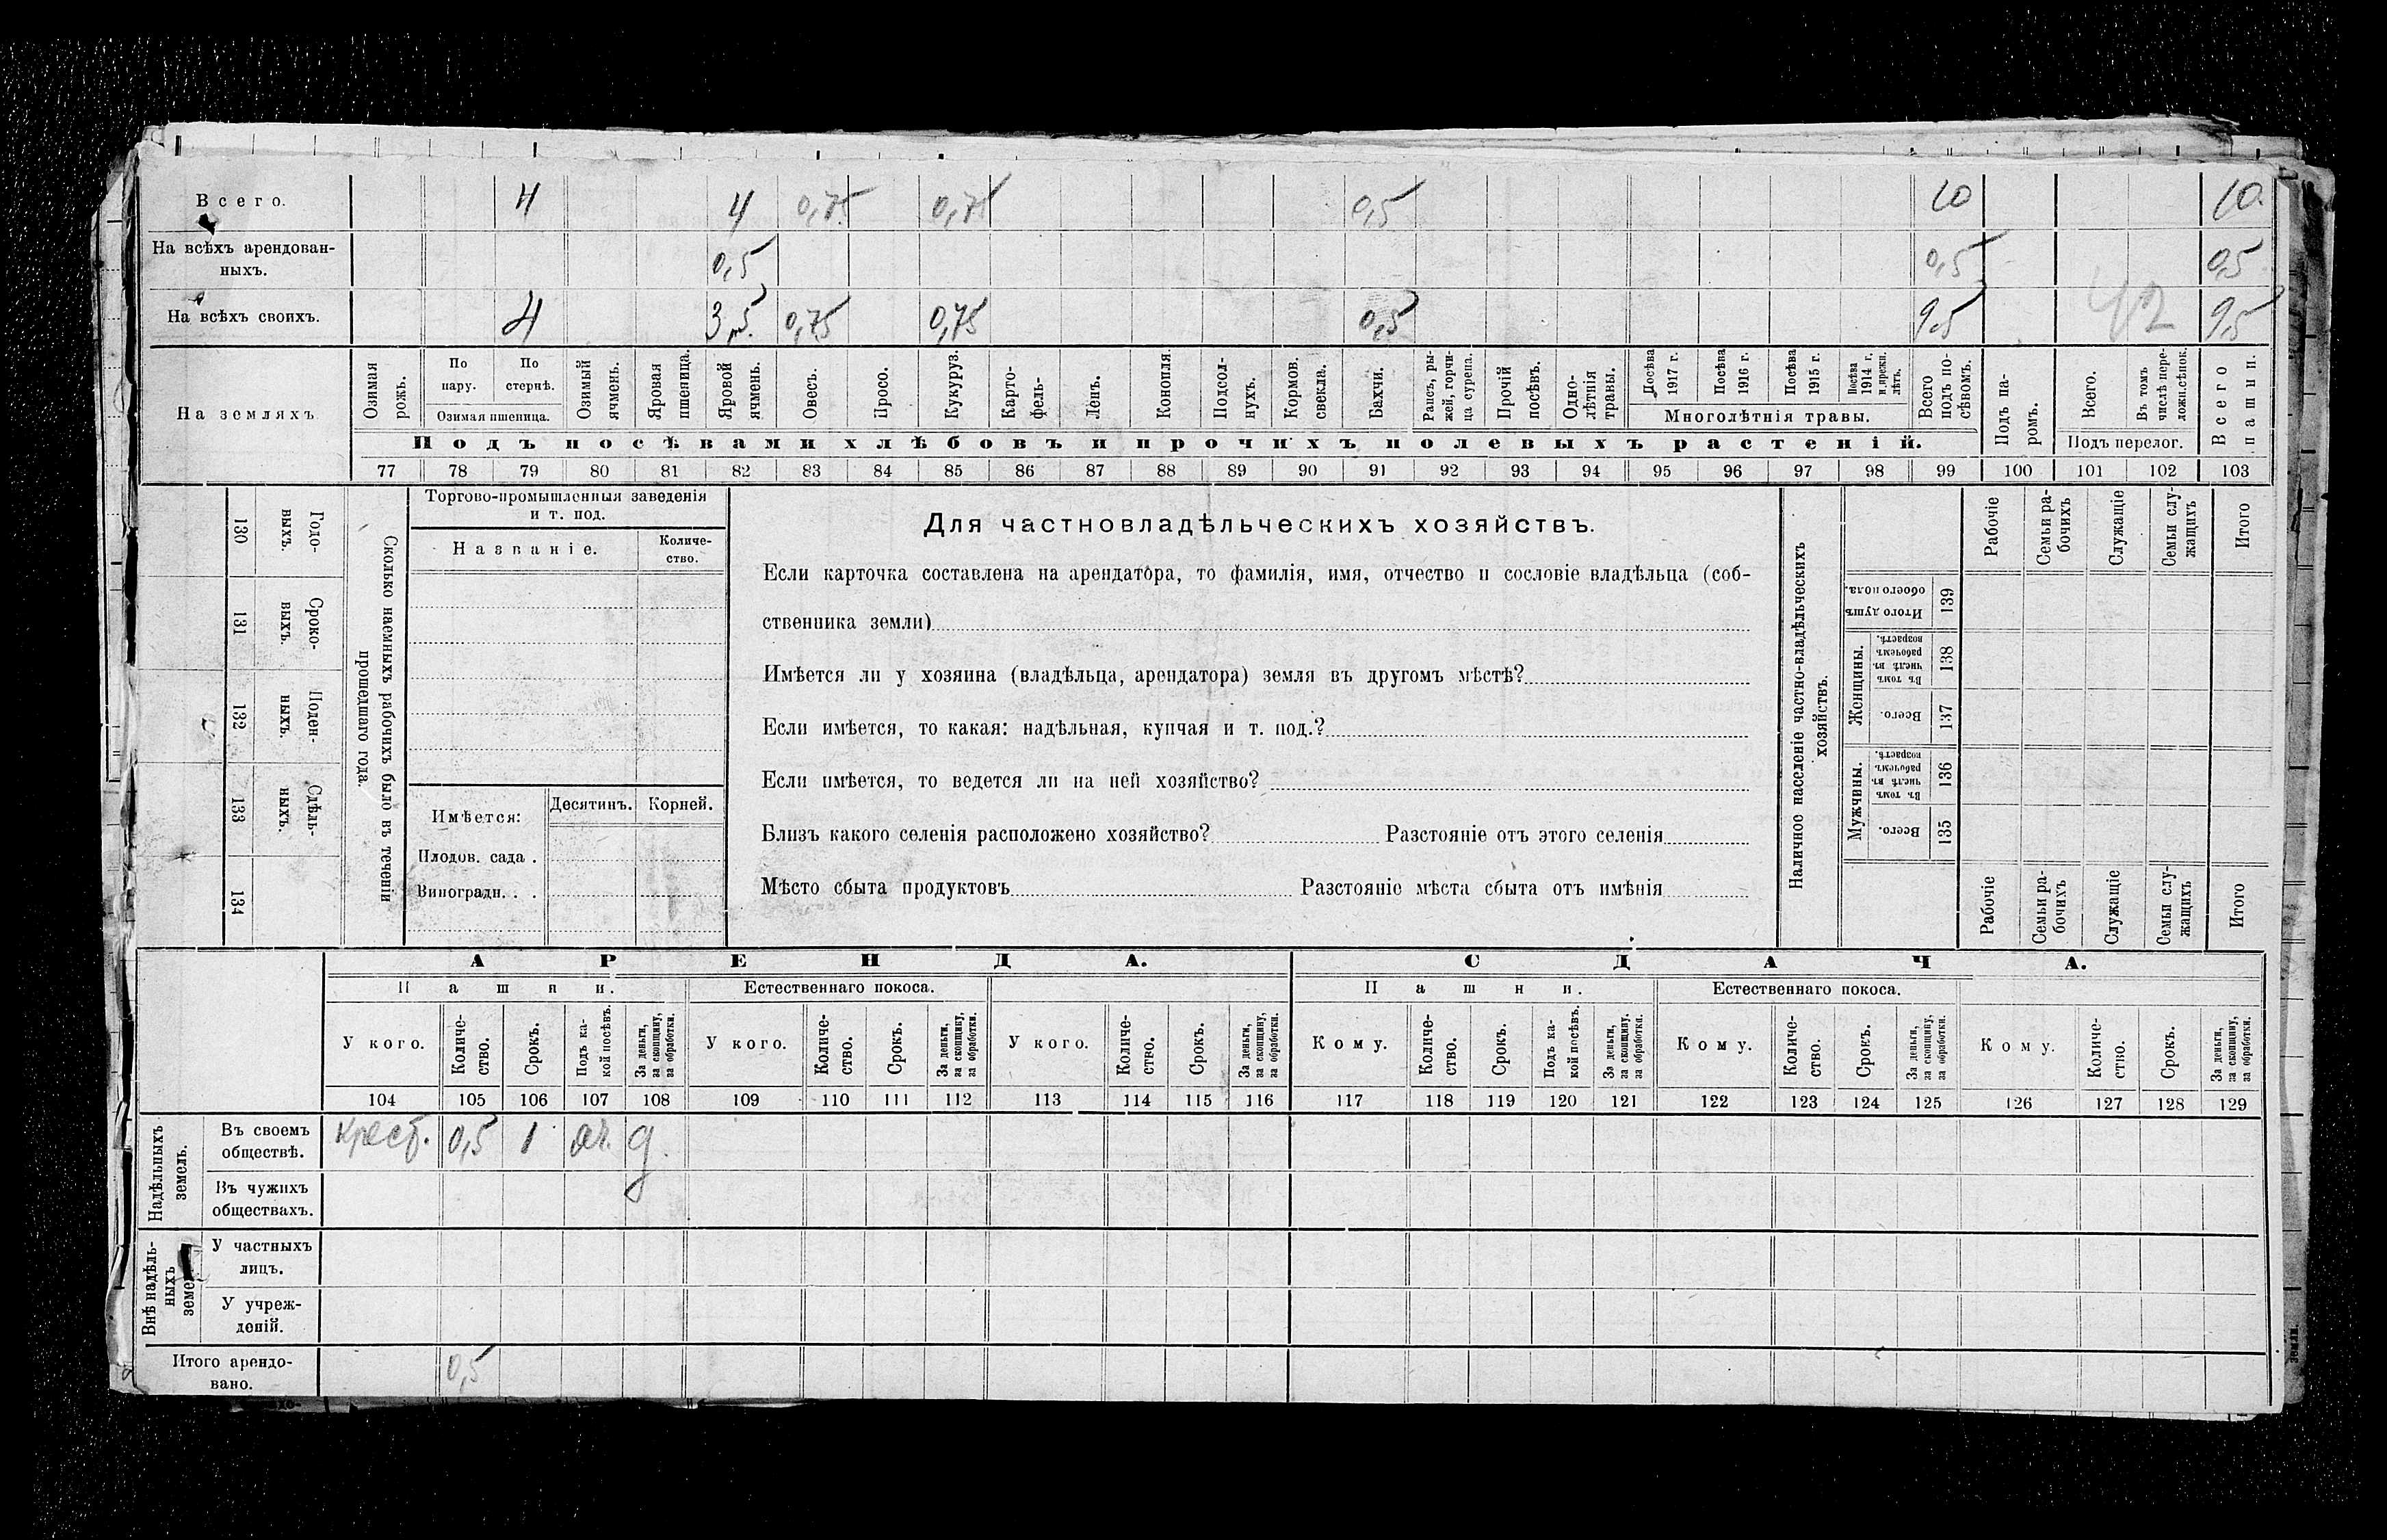 Всего. 4 4 0,75 0,75 0,5 10 10.
На всѣхъ арендован-
ныхъ. 0,5 0,5 0,5
На всѣхъ своихъ. 4 3,5 0,75 0,75 0,5 9,5 42 9,5
На земляхъ
Озимая рожь.
По пару.
По стернѣ.
Озимая пшеница.
Озимый ячмень.
Яровая пшеница.
Яровой ячмень.
Овесъ.
Просо.
Кукуруз.
Карто-
фель-
Ленъ.
Конопля.
Подсол-
нухъ.
Кормов. свекла.
Бахчи.
Рапсъ, ры-
жей, горчи-
ца сурепа.
Прочій посѣвъ.
Одно-
лѣтнія травы.
Посѣва 1917 г.
Посѣва 1916 г.
Посѣва 1915 г.
Посѣва 1914 г. и прежн. лѣтъ.
Многолѣтнія травы.
Всего подъ по-
сѣвомъ.
Подъ па-
ромъ.
Всего.
Въ томъ числѣ пере-
ложн. сѣнок.
Подъ перелог.
Всего пашни.
Подъ посѣвами хлѣбовъ и прочихъ полевыхъ растеній.
77 78 79 80 81 82 83 84 85 86 87 88 89 90 91 92 93 94 95 96 97 98 99 100 101 102 103
130 Годо-
выхъ.
131 Сроко-
выхъ.
132 Поден-
ныхъ.
133 Сдѣль-
ныхъ.
134
Сколько наемныхъ рабочихъ было въ теченіи
прошедшаго года.
Торгово-промышленныя заведенія
и т. под.
Названіе.
Количе-
ство.
Имѣется: Десятинъ. Корней.
Плодов. сада .
Виноградн. . .
Для частновладѣльческихъ хозяйствъ.
Если карточка составлена на арендатора, то фамилія, имя, отчество и сословіе владѣльца (соб-
ственника земли)
Имѣется ли у хозяина (владѣльца, арендатора) земля въ другомъ мѣстѣ?
Если имѣется, то какая: надѣльная, купчая и т. под.?
Если имѣется, то ведется ли на ней хозяйство?
Близъ какого селенія расположено хозяйство? Разстояніе отъ этого селенія
Мѣсто сбыта продуктовъ Разстояніе мѣста сбыта отъ имѣнія
Наличное населеніе частно-владѣльческихъ
хозяйствъ.
Рабочіе
Семьи ра-
бочихъ
Служащіе
Семьи слу-
жащихъ
Итого
Итого душъ обоего пола. 139
Женщины.
Въ томъ числѣ въ рабочемъ возрастѣ. 138
Всего. 137
Мужчины.
Въ томъ числѣ въ рабочемъ возрастѣ. 136
Всего. 135
Рабочіе
Семьи ра-
бочихъ
Служащіе
Семьи слу-
жащихъ
Итого
АРЕНДА. СДАЧА.
Пашни. Естественнаго покоса. Пашни. Естественнаго покоса.
У кого.
Количе-
ство.
Срокъ.
Подъ ка-
кой посѣвъ.
За деньги, за скопщину, за обработки.
У кого.
Количе-
ство.
Срокъ.
За деньги, за скопщину, за обработки.
У кого.
Количе-
ство.
Срокъ.
За деньги, за скопщину, за обработки.
Кому.
Количе-
ство.
Срокъ.
Подъ ка-
кой посѣвъ.
За деньги, за скопщину, за обработки.
Кому.
Количе-
ство.
Срокъ.
За деньги, за скопщину, за обработки.
Кому.
Количе-
ство.
Срокъ.
За деньги, за скопщину, за обработки.
104 105 106 107 108 109 110 111 112 113 114 115 116 117 118 119 120 121 122 123 124 125 126 127 128 129
Надѣльныхъ земель.
Въ своемъ
обществѣ. Крест. 0,5 1 яч. д.
Въ чужихъ
обществахъ.
Внѣ надѣль-
ныхъ
У частныхъ
лицъ.
У учреж-
деній.
Итого арендо-
вано. 0,5